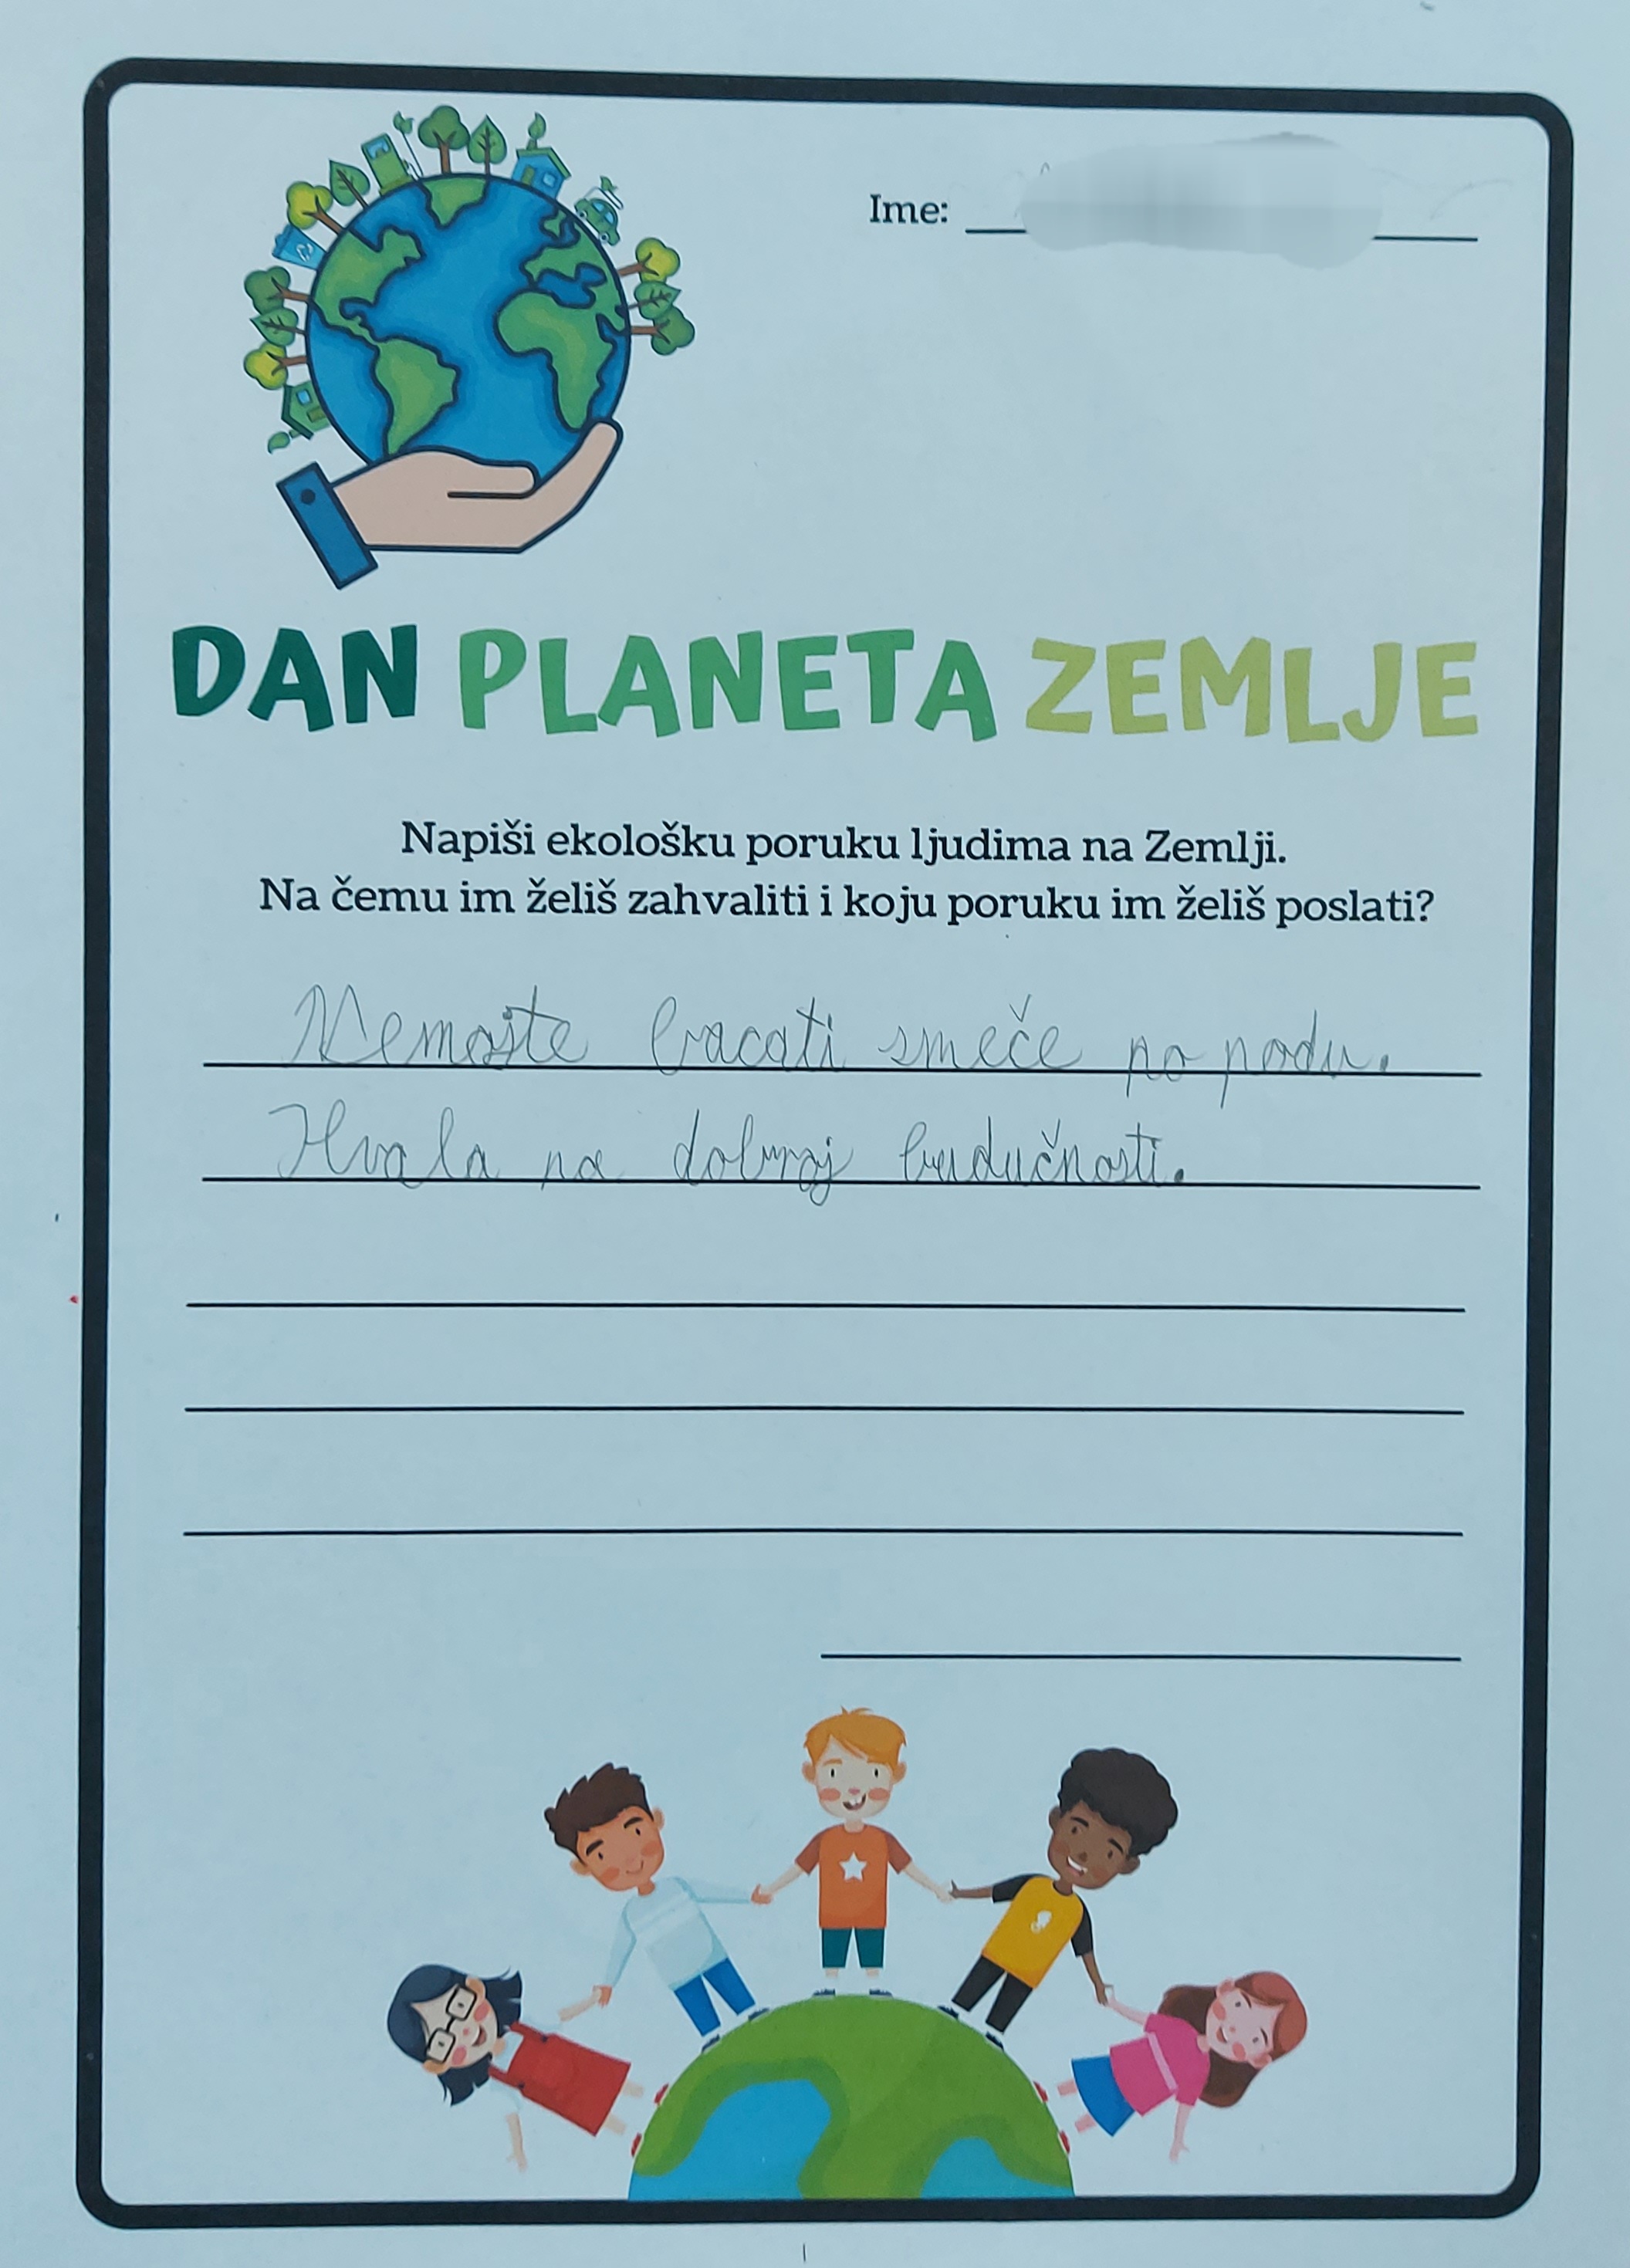 Ime:
DAN PLANETA ZEMLJE
Napiši ekološku poruku ljudima na Zemlji.
Na čemu im želiš zahvaliti i koju poruku im želiš poslati?
Nemojte bacati smeče po podu.
Hvala na dobroj budučnosti.